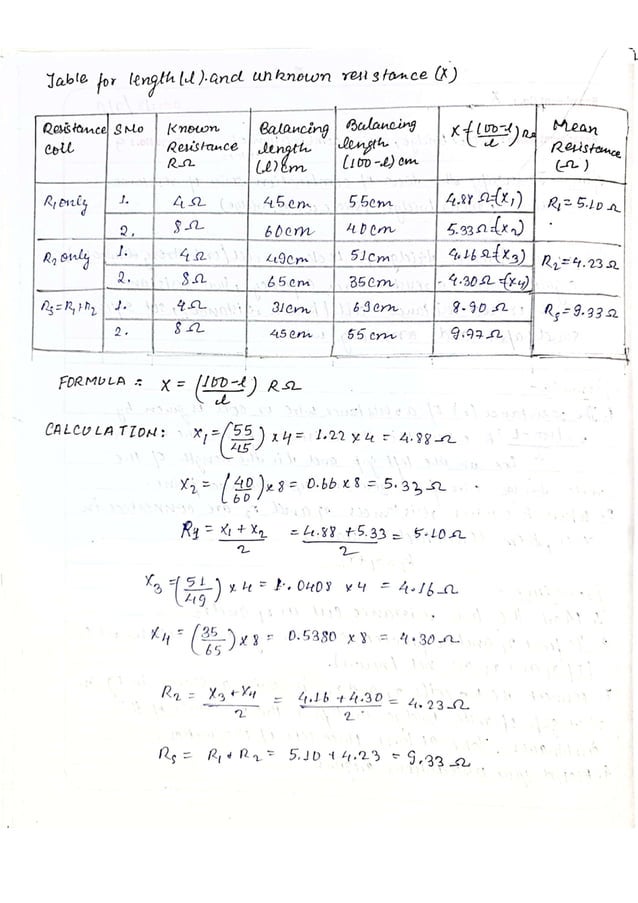 Table for length (l) and unknown resistance (X)
Resistance coil | S No | Known Resistance R Ω | Balancing length (l) cm | Balancing length (100-l) cm | X = (100-l / l) R Ω | Mean Resistance (Ω)
R₁ only | 1. | 4 Ω | 45cm | 55cm | 4.88 Ω=(X₁) | R₁ = 5.10 Ω
2. | 8 Ω | 60cm | 40cm | 5.33 Ω=(X₂)
R₂ only | 1. | 4 Ω | 49cm | 51cm | 4.16 Ω(X₃) | R₂=4.23 Ω
2. | 8 Ω | 65cm | 35cm | 4.30 Ω=(X₄)
Rs = R₁+R₂ | 1. | 4 Ω | 31cm | 69cm | 8.90 Ω | Rs = 9.33 Ω
2. | 8 Ω | 45cm | 55 cm | 9.77 Ω
FORMULA : X = (100-l / l) R Ω
CALCULATION: X₁ = (55/45) x 4 = 1.22 x 4 = 4.88 Ω
X₂ = (40/60) x 8 = 0.66 x 8 = 5.33 Ω
R₁ = X₁ + X₂ / 2 = 4.88 + 5.33 / 2 = 5.10 Ω
X₃ = (51/49) x 4 = 1.0408 x 4 = 4.16 Ω
X₄ = (35/65) x 8 = 0.5380 x 8 = 4.30 Ω
R₂ = X₃ + X₄ / 2 = 4.16 + 4.30 / 2 = 4.23 Ω
Rs = R₁ + R₂ = 5.10 + 4.23 = 9.33 Ω